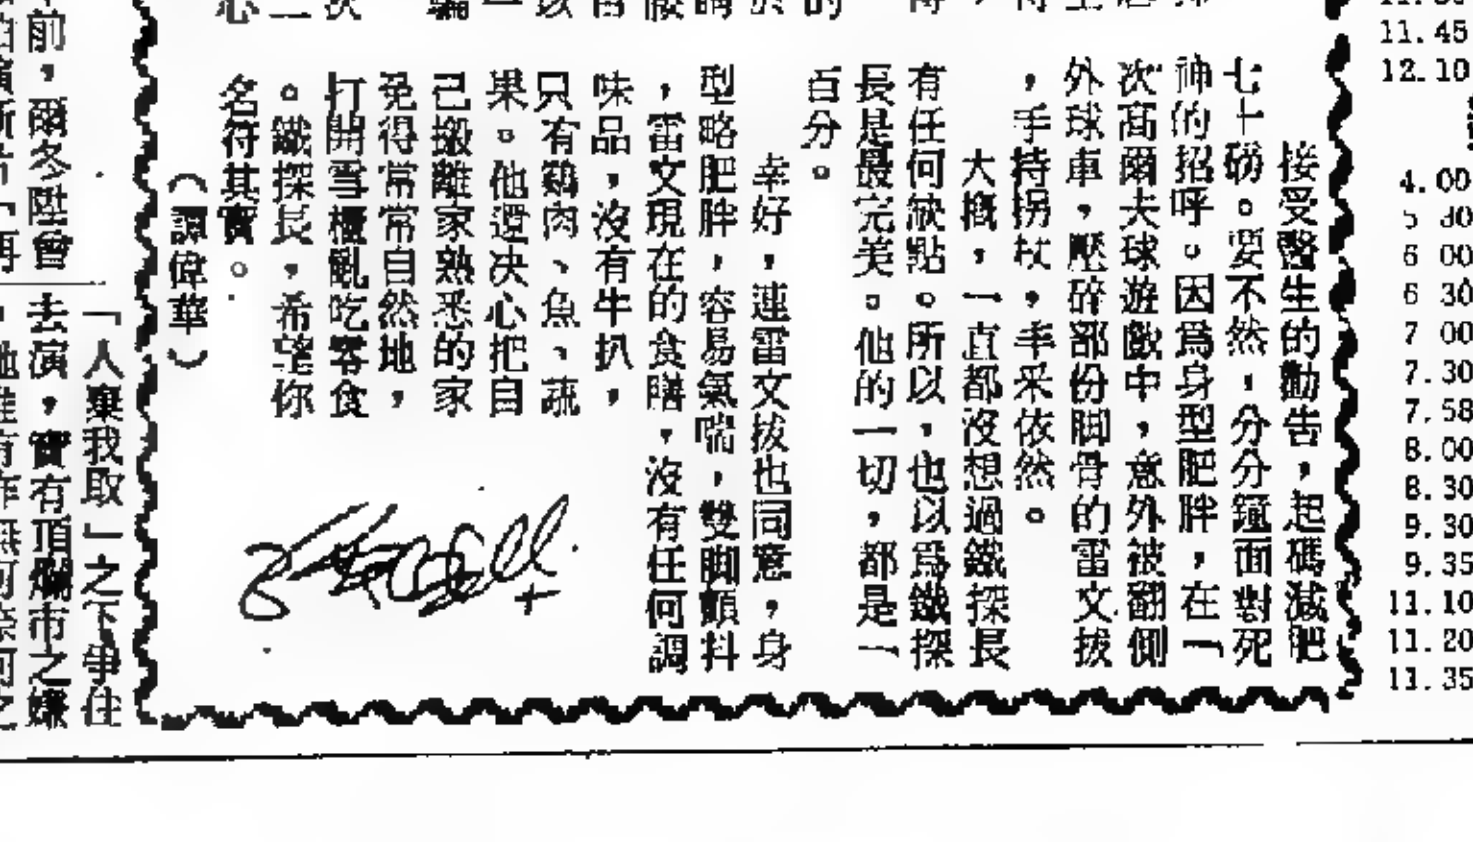 接受醫生的勸告，起碼減肥
七十磅。要不然，分分鐘面對死
神的招呼。因爲身型肥胖，在一
次高爾夫球遊戲中，意外被翻側
外球車，壓碎部份脚骨的雷文拔
，手持拐杖，手采依然。
大概，一直都沒想過鐵探長
有任何缺點。所以，也以爲鐵探
長是最完美。他的一切，都是一
百分。
幸好，連雷文拔也同意，身
型略肥胖，容易氣喘，雙脚顫抖
，雷文現在的食膳，沒有任何調
味品，沒有牛扒，
只有鷄肉、魚、蔬
果。他還决心把自
己搬離家熟悉的家
免得常常自然地，
打開雪櫃亂吃零食
。鐵探長，希望你
名符其實。
（譚偉華）
「人棄我取」之下爭住
去演，實有頂爛市之嫌
前，爾冬陞曾
11.45
12.10
4.00
6 00
6 30
7 00
7.30
7.58
8.00
8.30
9.30
9.35
11.10
11.20
11.35